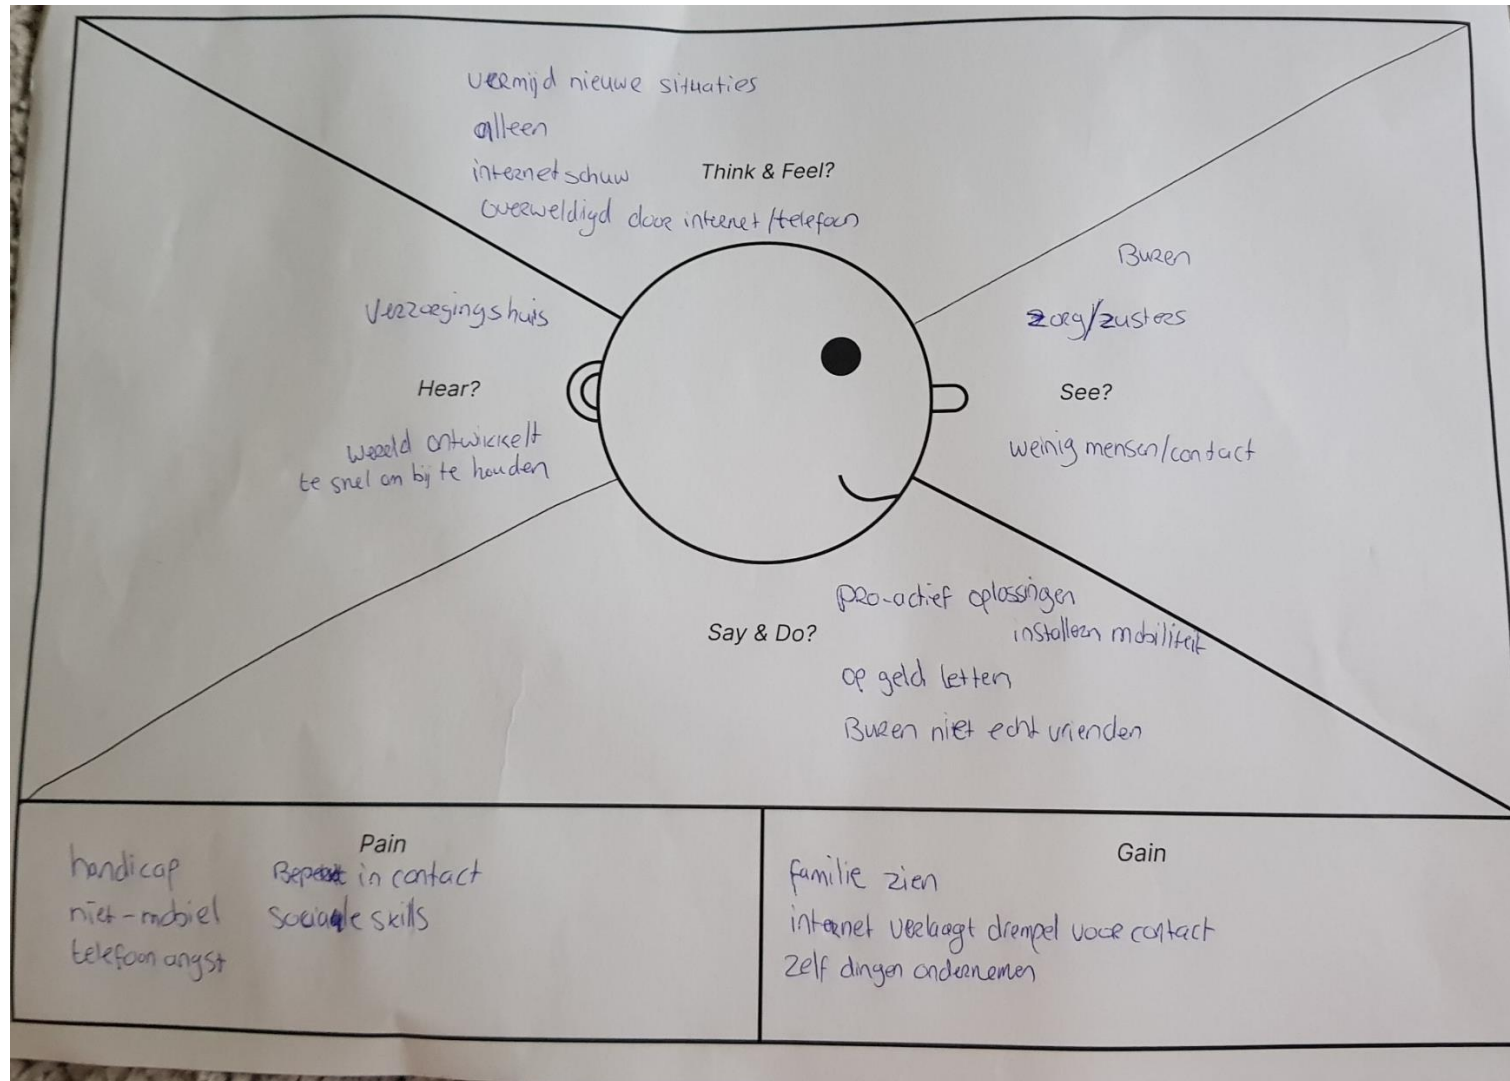 vermijd nieuwe situaties
alleen
internetschuw
Think & Feel?
overweldigd door internet/telefoon
Verzorgingshuis
Hear?
wereld ontwikkelt
te snel om bij te houden
Buren
zorg/zusters
See?
weinig mensen/contact
Say & Do?
pro-actief oplossingen
installern mobiliteit
op geld letten
Buren niet echt vrienden
Pain
handicap
niet-mobiel
telefoon angst
Beperkt in contact
sociaale skills
Gain
familie zien
internet verlaagt drempel voor contact
zelf dingen ondernemen